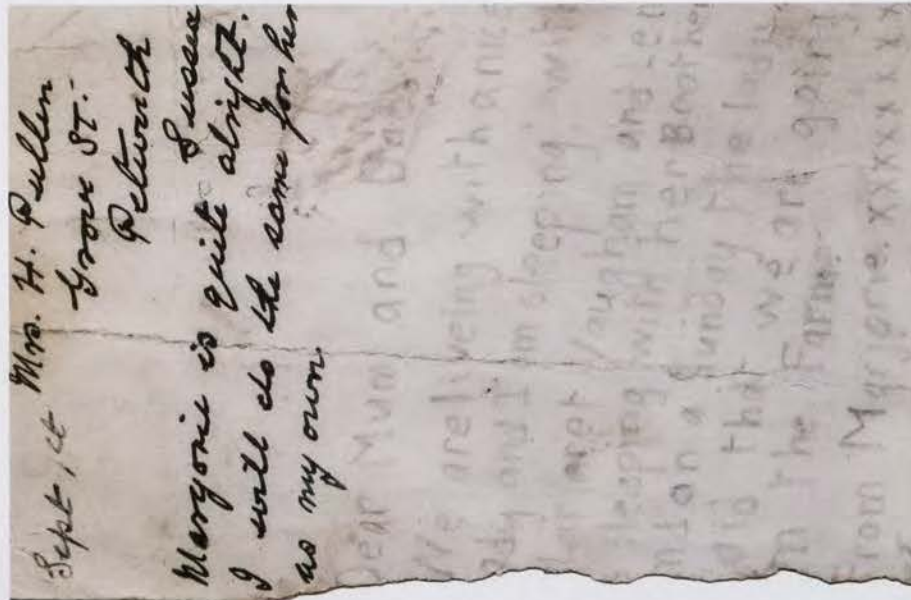 Sept 1st Mrs. H. Pullen
Grove St.-
Petworth
Sussex
Marjorie is quite alright.
I will do the same for her
as my own.
Dear Mum and Dad
We are liveing with a nic
ady and I am sleeping wi
argaret Vaughan and Len
sleeping with her Brother
on a Sunday the lad
aid that we are going
n the Farm.
From Marjorie. xxxxxxx